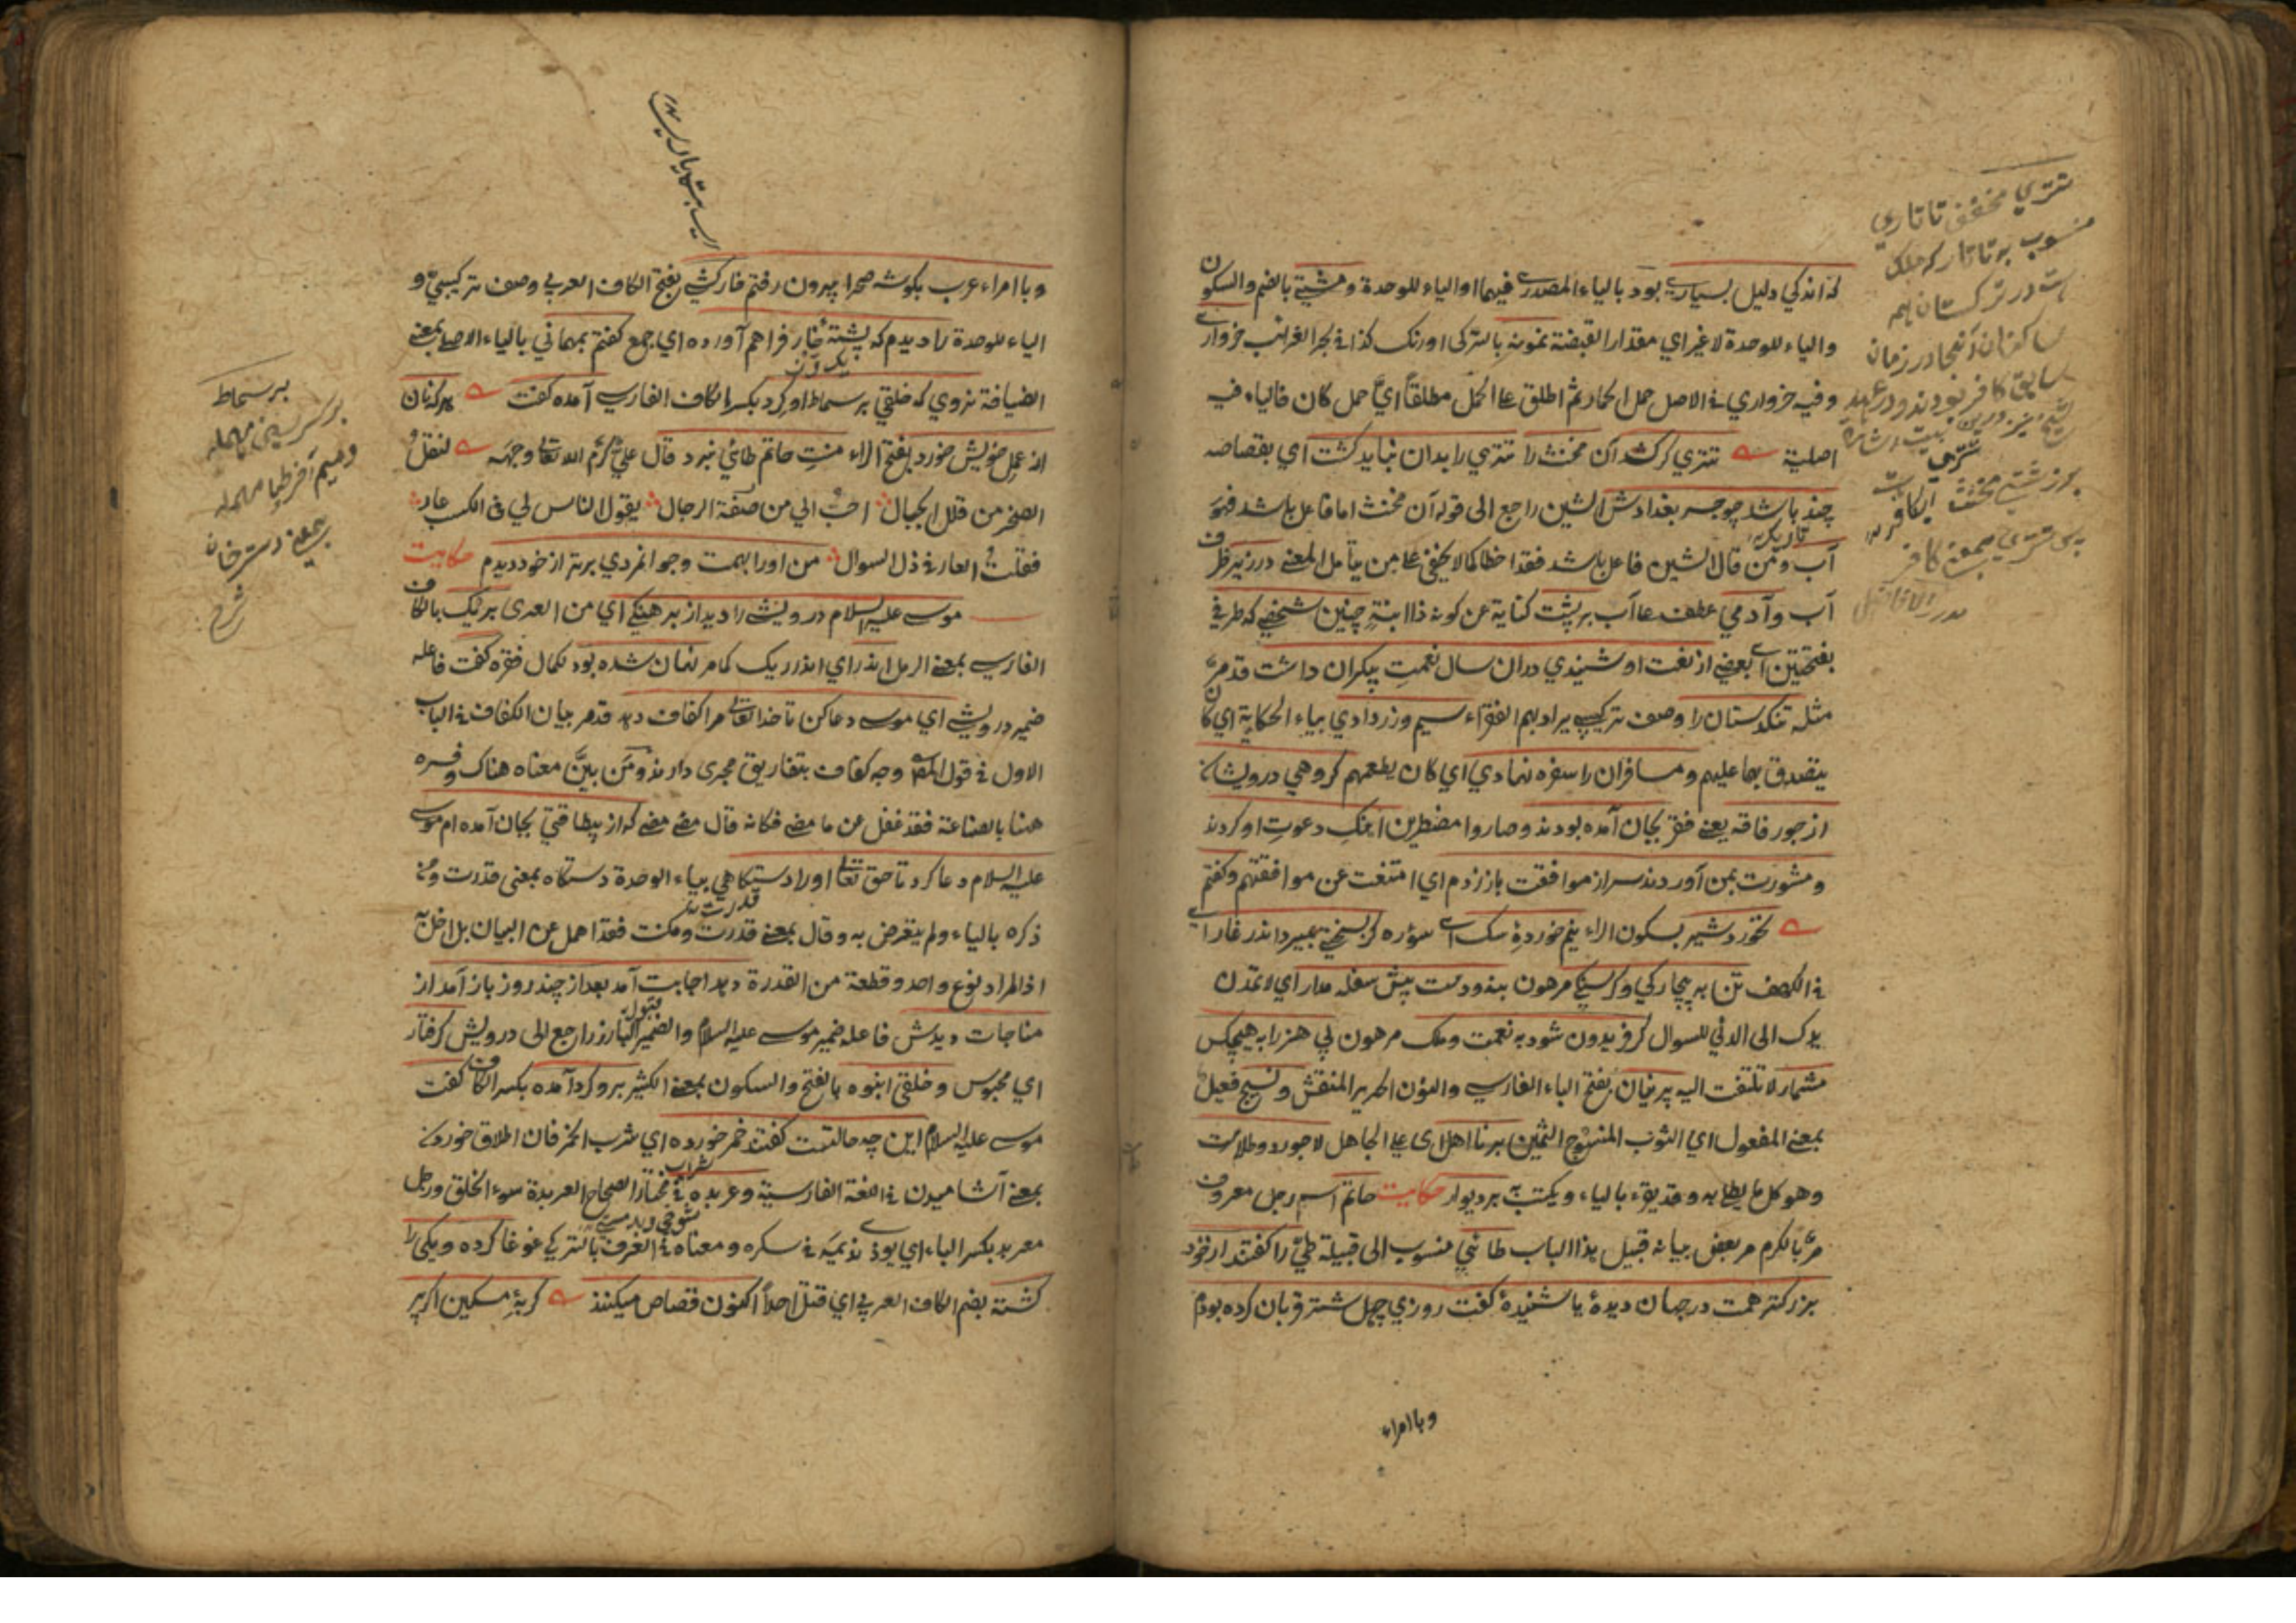 که اندکی دلیل بسیاری بود بالیاء المصدری فیهما او الیاء للوحدة و مشتی بالضم والسکون
والیاء للوحدة لا غیر ای مقدار القبضة نمونه بالترکی اورنک کذا فی بحر الغرائب خرواری
وفیه خرواری فی الاصل حمل الحمار ثم اطلق علی الحمل مطلقاً ایّ حمل کان فالیاء فیه
اصلیة تتری کر کشد آن مخنث را تتری را بدان نباید کشت ای بقصاصه
چند باشد چو جسر بغدادش الشین راجع الی قوله آن مخنث اما فاعل باشد فهو
آب ومن قال الشین فاعل باشد فقد اخطا کما لا یخفی علی من یتأمل المعنی در زیر ظرف
آب وآدمی عطف علی آب بر پشت کنایة عن کونه ذا ابنةٍ چنین شخصی که طرفی
بفتحتین ای بعضی از نعت او شنیدی دران سال نعمت بیکران داشت قد مرّ
مثله تنکدستان را وصف ترکیبی یراد بهم الفقراء سیم وزر دادی بیاء الحکایة ای کان
یتصدق بها علیهم ومسافران را سفره نهادی ای کان یطعمهم کروهی درویشان
از جور فاقه یعنی فقر بجان آمده بودند وصاروا مضطرین آهنک دعوت او کردند
ومشورت بمن آوردند سر از موافقت باز زدم ای امتنعت عن موافقتهم وکفتم
نخورد شیر بسکون الراء نیم خوردهٔ سک ای سؤره کر بسختی بمیرد اندر غار ای
فی الکهف تن به بیچارکی وکرسنکی مرهون بنه ودست پیش سفله مدار ای لا تمدن
یدک الی الدنی للسوال کر فریدون شود به نعمت وملک مرهون بی هنر را به هیچکس
مشمار لا تلتفت الیه پرنیان بفتح الباء الفارسی والنون الحریر المنقش ونسیج فعیل
بمعنی المفعول ای الثوب المنسوج الثمین بر نا اهل ای علی الجاهل لاجورد وطلاست
وهو کل ما یطلی به وقد یقرء بالیاء ویکتب به بر دیوار حکایت حاتم اسم رجل معروف
مرّ بالکرم مر بعض بیانه قبیل هذا الباب طائی منسوب الی قبیلة طیّ را کفتند از خود
بزرکتر همت در جهان دیدهٔ یا شنیدهٔ کفت روزی چهل شتر قربان کرده بودم
وبا امراء
تتری مخفف تاتاری
منسوب به تاتار که ملک
است در ترکستان
ساکنان آنجا در زمان
سابق کافر بودند ودر عهد
وبا امراء عرب بکوشه صحرا بیرون رفتم خارکشی بفتح الکاف العربی وصف ترکیبی و
الیاء للوحدة را دیدم که پشتهٔ خار فراهم آورده ای جمع کفتم بمهمانی بالیاء الاصلی بمعنی
الضیافة نروی که خلقی بر سماط او کرد بکسر الکاف الفارسی آمده کفت هر که نان
از عمل خویش خورد بفتح الراء منت حاتم طائی نبرد قال علی کرّم الله تعالی وجهه لنقل
الصخر من قلل الجبال احبّ الی من منّة الرجال یقول الناس لی فی الکسب عار
فقلت العار فی ذل السوال من او را بهمت وجوانمردی برتر از خود دیدم حکایت
موسی علیه السلام درویشی را دید از برهنکی ای من العری بریک بالکاف
الفارسی بمعنی الرمل اندر ای اندر ریک کما مر نهان شده بود لکمال فقره کفت فاعله
ضمیر درویشی ای موسی دعا کن تا خدا تعالی مرا کفاف دهد قد مر بیان الکفاف فی الباب
الاول فی قول المص وجه کفاف بتفاریق مجری دارند ومن بیّن معناه هناک وفسره
ههنا بالصناعة فقد غفل عن ما مضی فکانه قال مضی مضی که از بیطاقتی بجان آمده ام موسی
علیه السلام دعا کرد تا حق تعالی او را دستکاهی بیاء الوحدة دستکاه بمعنی قدرت ومن
ذکره بالیاء ولم یتعرض به وقال بمعنی قدرت ومکنت فقد اهمل عن البیان بل اخلّ
اذ المراد نوع واحد وقطعة من القدرة دهد اجابت آمد بعد از چند روز باز آمد از
مناجات دیدش فاعله ضمیر موسی علیه السلام والضمیر البارز راجع الی درویش کرفتار
ای محبوس وخلقی انبوه بالفتح والسکون بمعنی الکثیر برو کرد آمده بکسر الکاف کفت
موسی علیه السلام این چه حالتست کفتند خمر خورده ای شرب الخمر فان اطلاق خوردن
بمعنی آشامیدن فی اللغة الفارسیة وعربده فی مختار الصحاح العربدة سوء الخلق ورجل
معربد بکسر الباء ای یوذی ندیمه فی سکره ومعناه فی العرف بالترکی غوغا کرده ویکی را
کشته بضم الکاف العربی ای قتل احداً اکنون قصاص میکنند کربهٔ مسکین اکر پر
بر سماط
بر کسر سین مهمله
ومیم آخر طا مهمله
بمعنی دستر خان
شرح